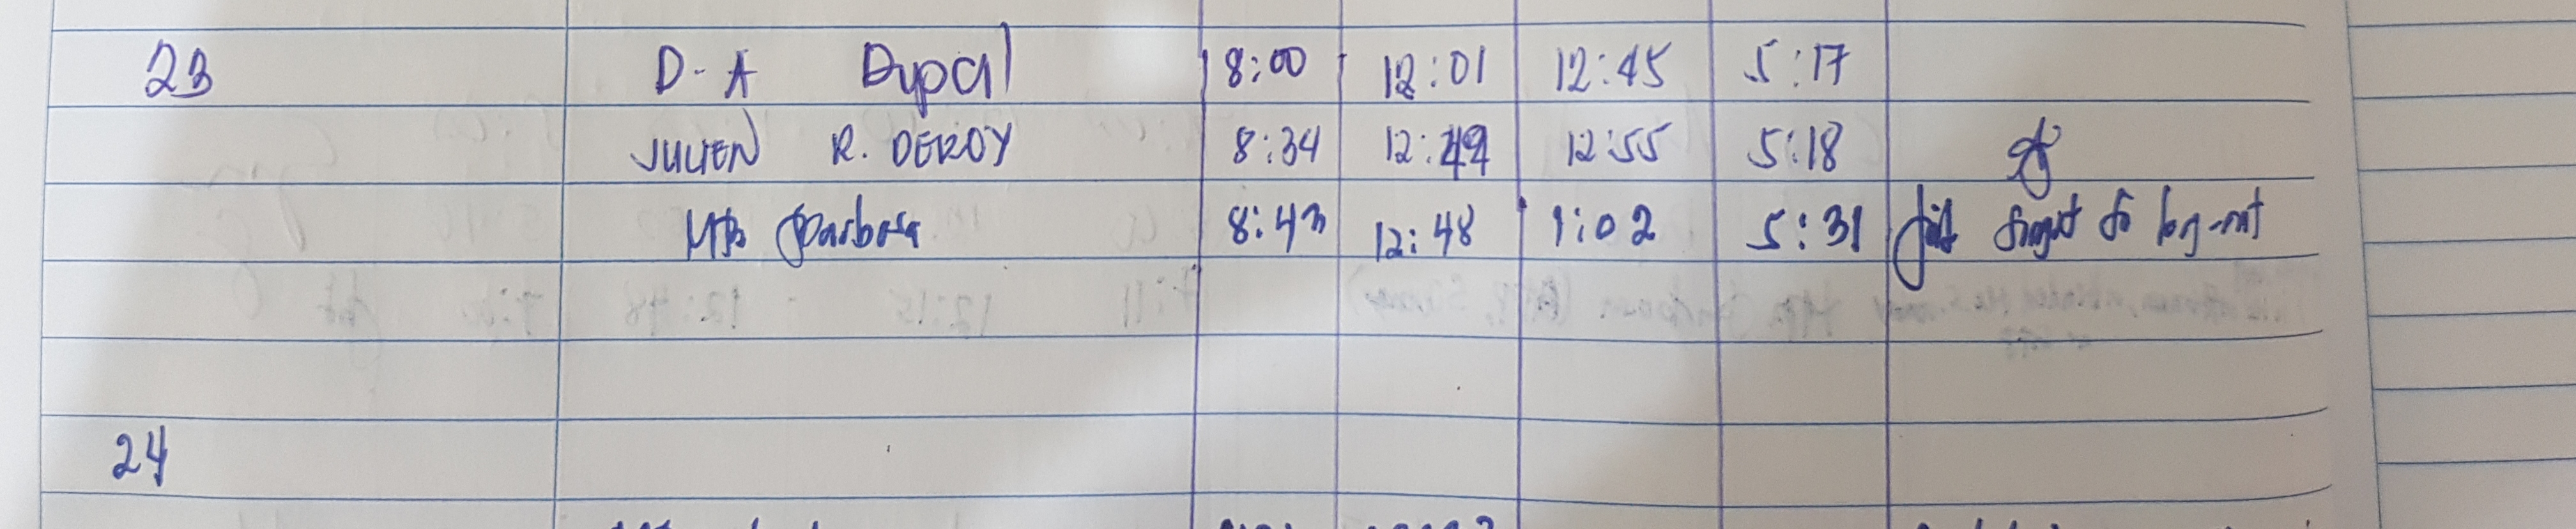 23 D-A Dypal 8:00 12:01 12:45 5:17
JULIEN R. DEROY 8:34 12:49 12:55 5:18
MB Barbosa 8:43 12:48 1:02 5:31 forgot to log-out
24